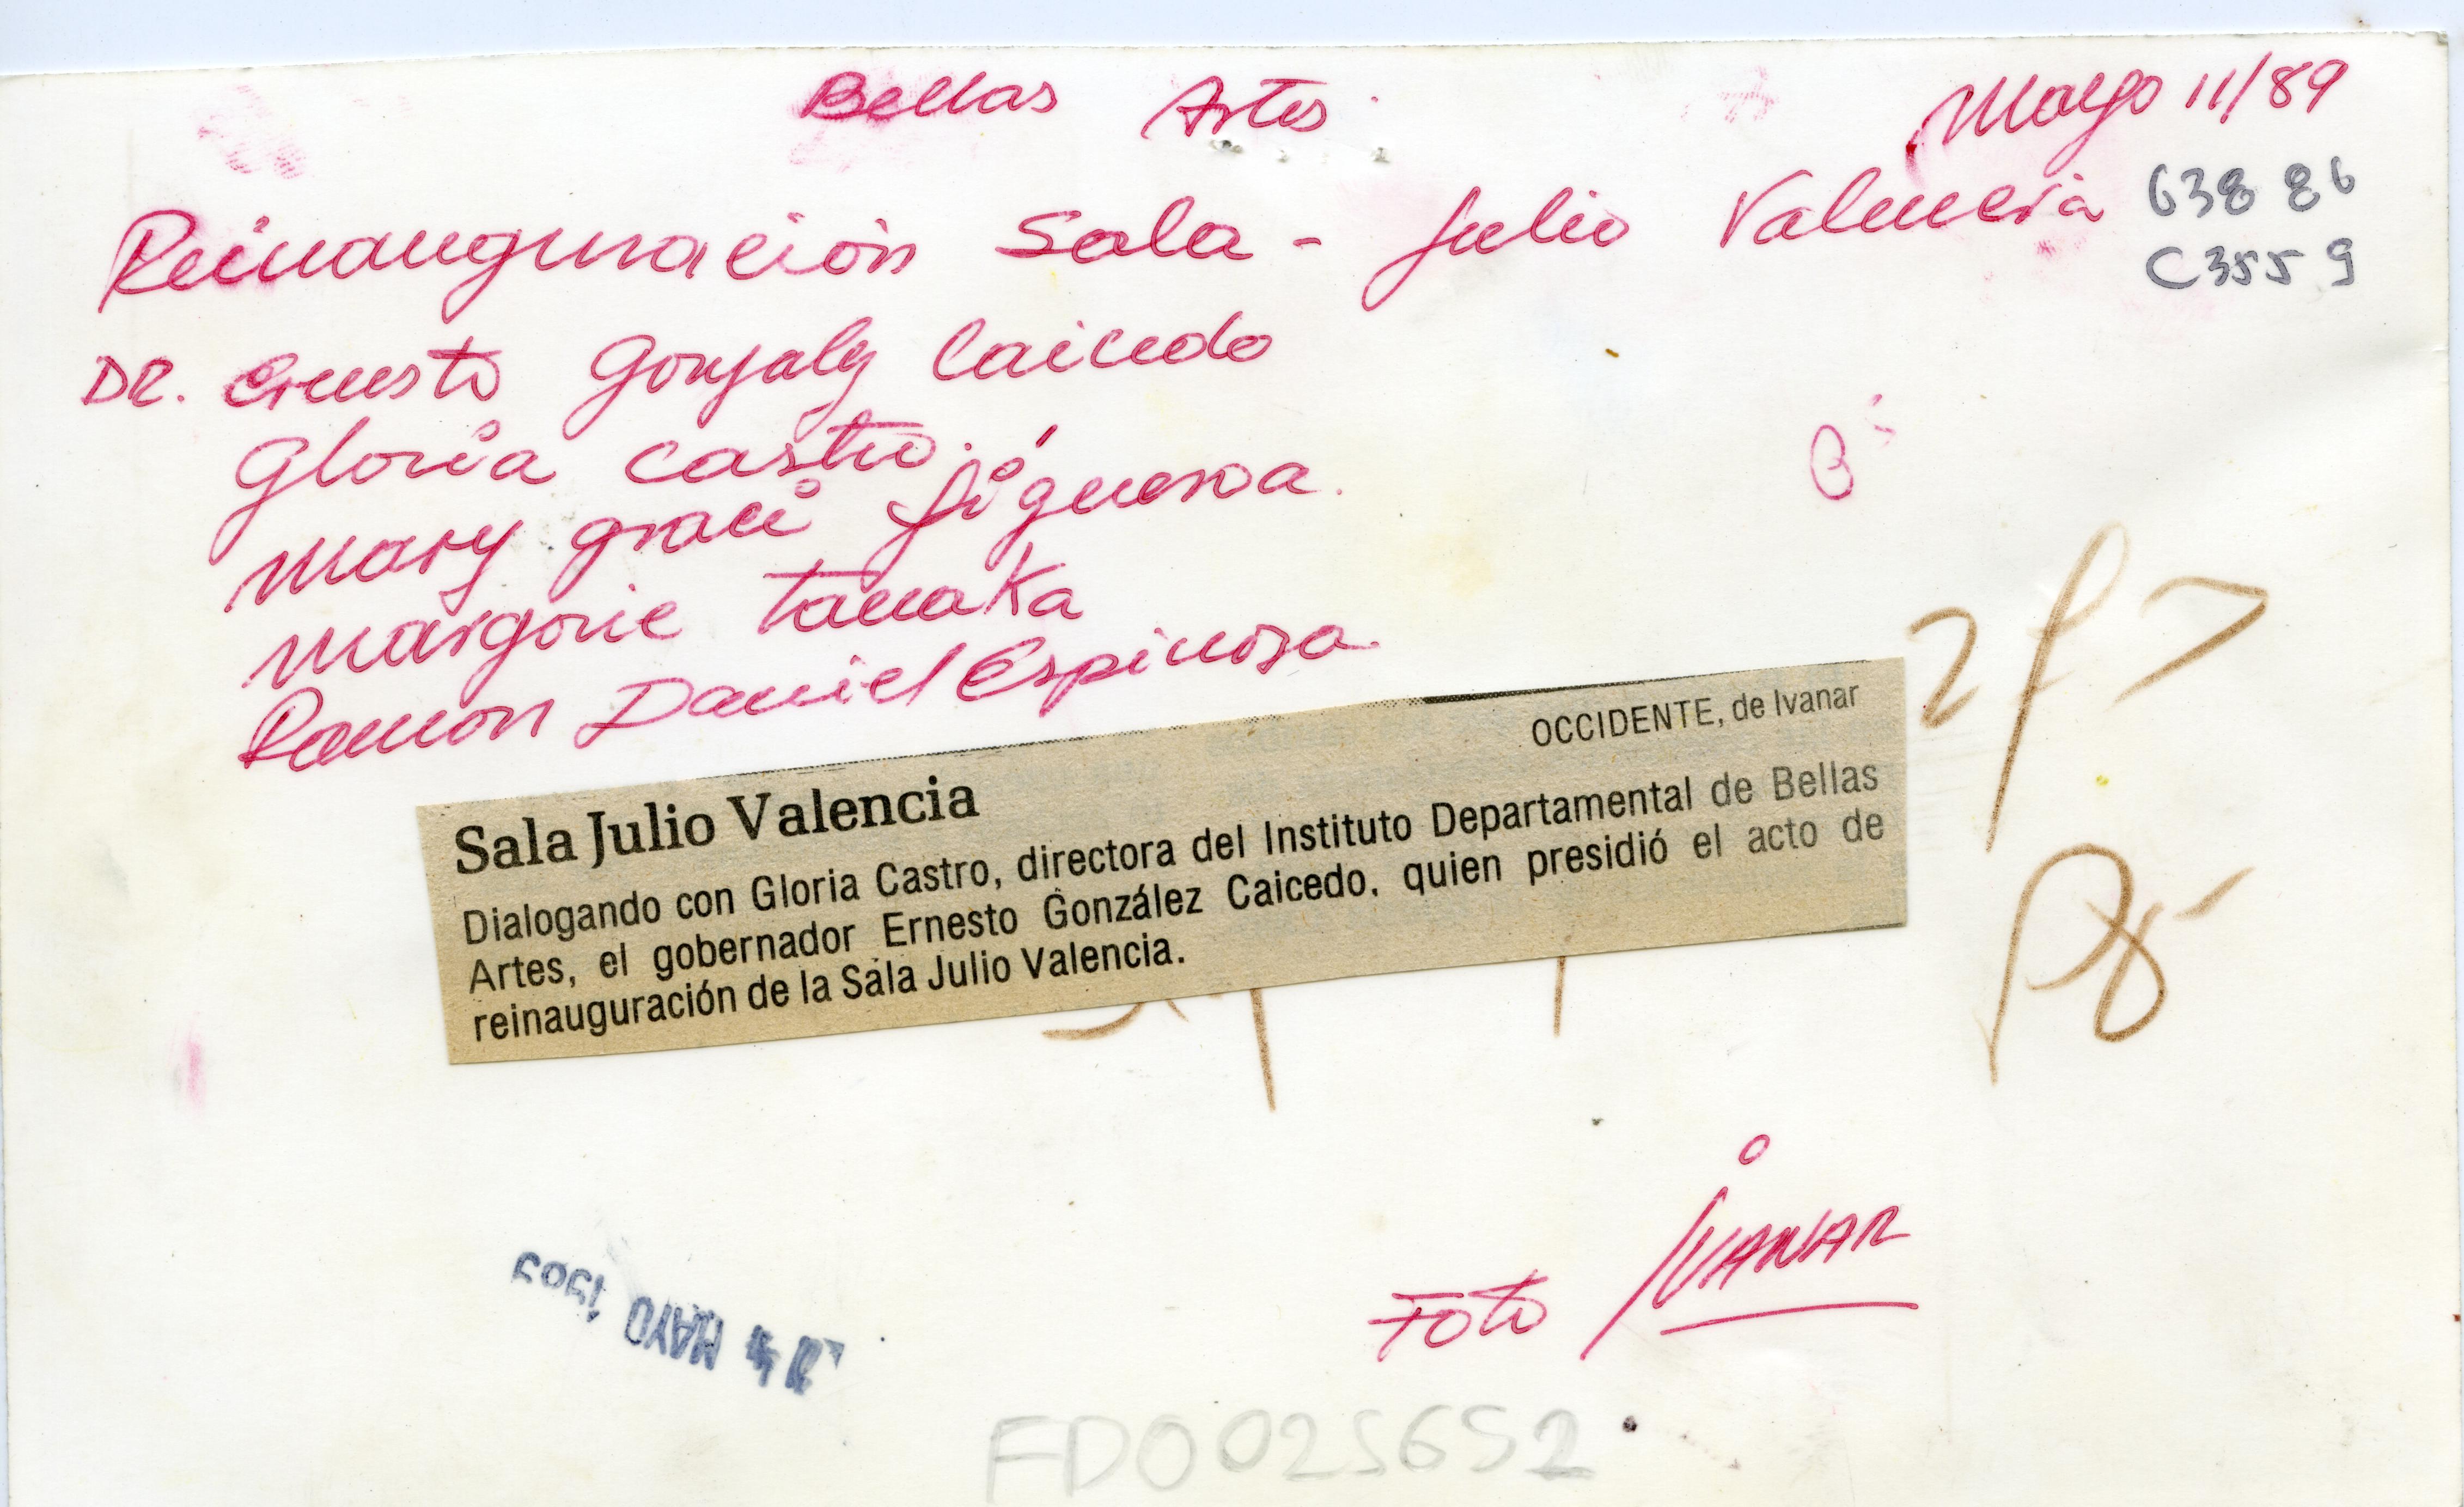 Bellas Artes.
Mayo 11/89
Reinauguración Sala - Julio Valencia
63886
C3559
DR. Ernesto Gonzalez Caicedo
Gloria Castro.
Mary graci figueroa.
Margorie Tanaka
Ramon Daniel Espinosa.
OCCIDENTE, de Ivanar
Sala Julio Valencia
Dialogando con Gloria Castro, directora del Instituto Departamental de Bellas
Artes, el gobernador Ernesto González Caicedo, quien presidió el acto de
reinauguración de la Sala Julio Valencia.
MAYO
Foto IVANAR
FD0025652